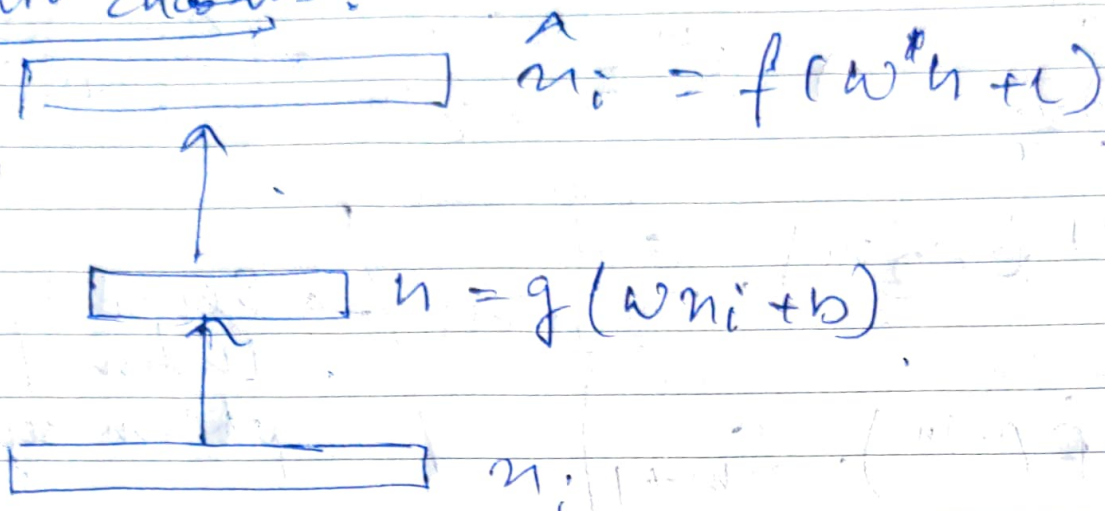 x̂ᵢ = f(W*h + c)
h = g(Wxᵢ + b)
xᵢ